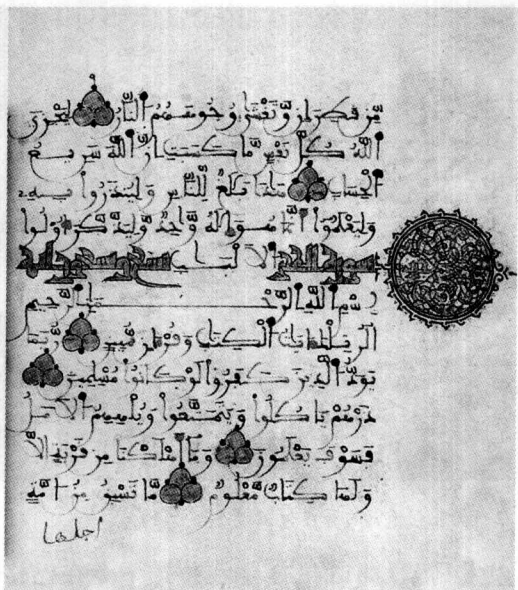 مِّن قَطِرَانٍ وَتَغْشَىٰ وُجُوهَهُمُ النَّارُ لِيَجْزِيَ
اللَّهُ كُلَّ نَفْسٍ مَّا كَسَبَتْ إِنَّ اللَّهَ سَرِيعُ
الْحِسَابِ هَٰذَا بَلَٰغٌ لِّلنَّاسِ وَلِيُنذَرُوا بِهِ
وَلِيَعْلَمُوا أَنَّمَا هُوَ إِلَٰهٌ وَٰحِدٌ وَلِيَذَّكَّرَ أُولُوا
الْأَلْبَٰبِ
بِسْمِ اللَّهِ الرَّحْمَٰنِ الرَّحِيمِ
الٓر تِلْكَ ءَايَٰتُ الْكِتَٰبِ وَقُرْءَانٍ مُّبِينٍ رُّبَمَا
يَوَدُّ الَّذِينَ كَفَرُوا لَوْ كَانُوا مُسْلِمِينَ
ذَرْهُمْ يَاكُلُوا وَيَتَمَتَّعُوا وَيُلْهِهِمُ الْأَمَلُ
فَسَوْفَ يَعْلَمُونَ وَمَا أَهْلَكْنَا مِن قَرْيَةٍ إِلَّا
وَلَهَا كِتَابٌ مَّعْلُومٌ مَّا تَسْبِقُ مِنْ أُمَّةٍ
اجلها